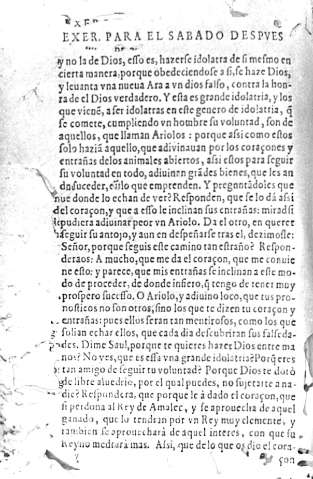 EXER. PARA EL SABADO DESPVES
y no la de Dios, esso es, hazerse idolatra de si mesmo en
cierta manera, porque obedeciendose a si, se haze Dios,
y leuanta vna nueua Ara a vn dios falso, contra la hon-
ra de el Dios verdadero. Y esta es grande idolatria, y los
que vienē, a ser idolatras en este genero de idolatria, q̄
se comete, cumpliendo vn hombre su voluntad, son de
aquellos, que llaman Ariolos: porque assi como estos
solo haziā aquello, que adiuinauan por los coraçones y
entrañas delos animales abiertos, assi estos para seguir
su voluntad en todo, adiuinan grādes bienes, que les an
de suceder, ē silo que emprenden. Y preguntādoles que
de donde lo echan de ver? Responden, que se lo dà así
del coraçon, y que a esso le inclinan sus entrañas: mirad si
pudiera adiuinar peor vn Ariolo. Da el otro, en querer
seguir su antojo, y aun en despeñarse tras el, dezimosle:
Señor, porque seguis este camino tan estraño? Respon-
deraos: A mucho, que me da el coraçon, que me conuie
ne esto: y parece, que mis entrañas se inclinan a este mo-
do de proceder, de donde infiero, q̄ tengo de tener muy
prospero sucesso. O Ariolo, y adiuino loco, que tus pro-
nosticos no son otros, sino los que te dizen tu coraçon y
entrañas: pues ellos seran tan mentirosos, como los que
solian echar ellos, que cada dia descubriran sus falseda-
des. Dime Saul, porque te quieres hazer Dios entre ma
nos? No ves, que es essa vna grande idolatria? Porq̄ eres
tan amigo de seguir tu voluntad? Porque Dios te dotò
de libre aluedrio, por el qual puedes, no sujetarte a na-
die? Respondera, que porque le à dado el coraçon, que
si perdona al Rey de Amalec, y se aprouecha de aquel
ganado, que lo tendran por vn Rey muy clemente, y
tambien se aprouecharà de aquel interes, con que su
Reyno medrarà mas. Assi, que de lo que os dio el cora-
çon